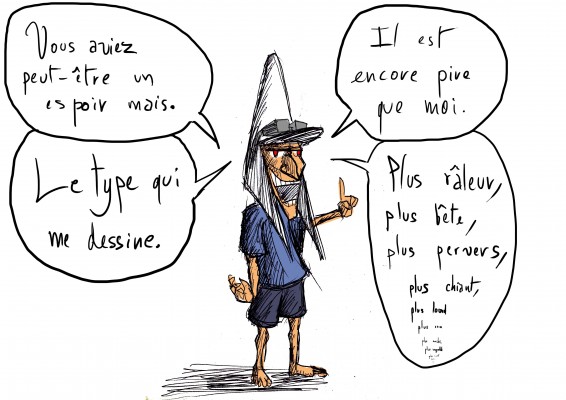 Vous aviez
peut-être un
espoir mais.
Le type qui
me dessine.
Il est
encore pire
que moi.
Plus râleur,
plus bête,
plus pervers,
plus chiant,
plus lourd
plus
plus
plus